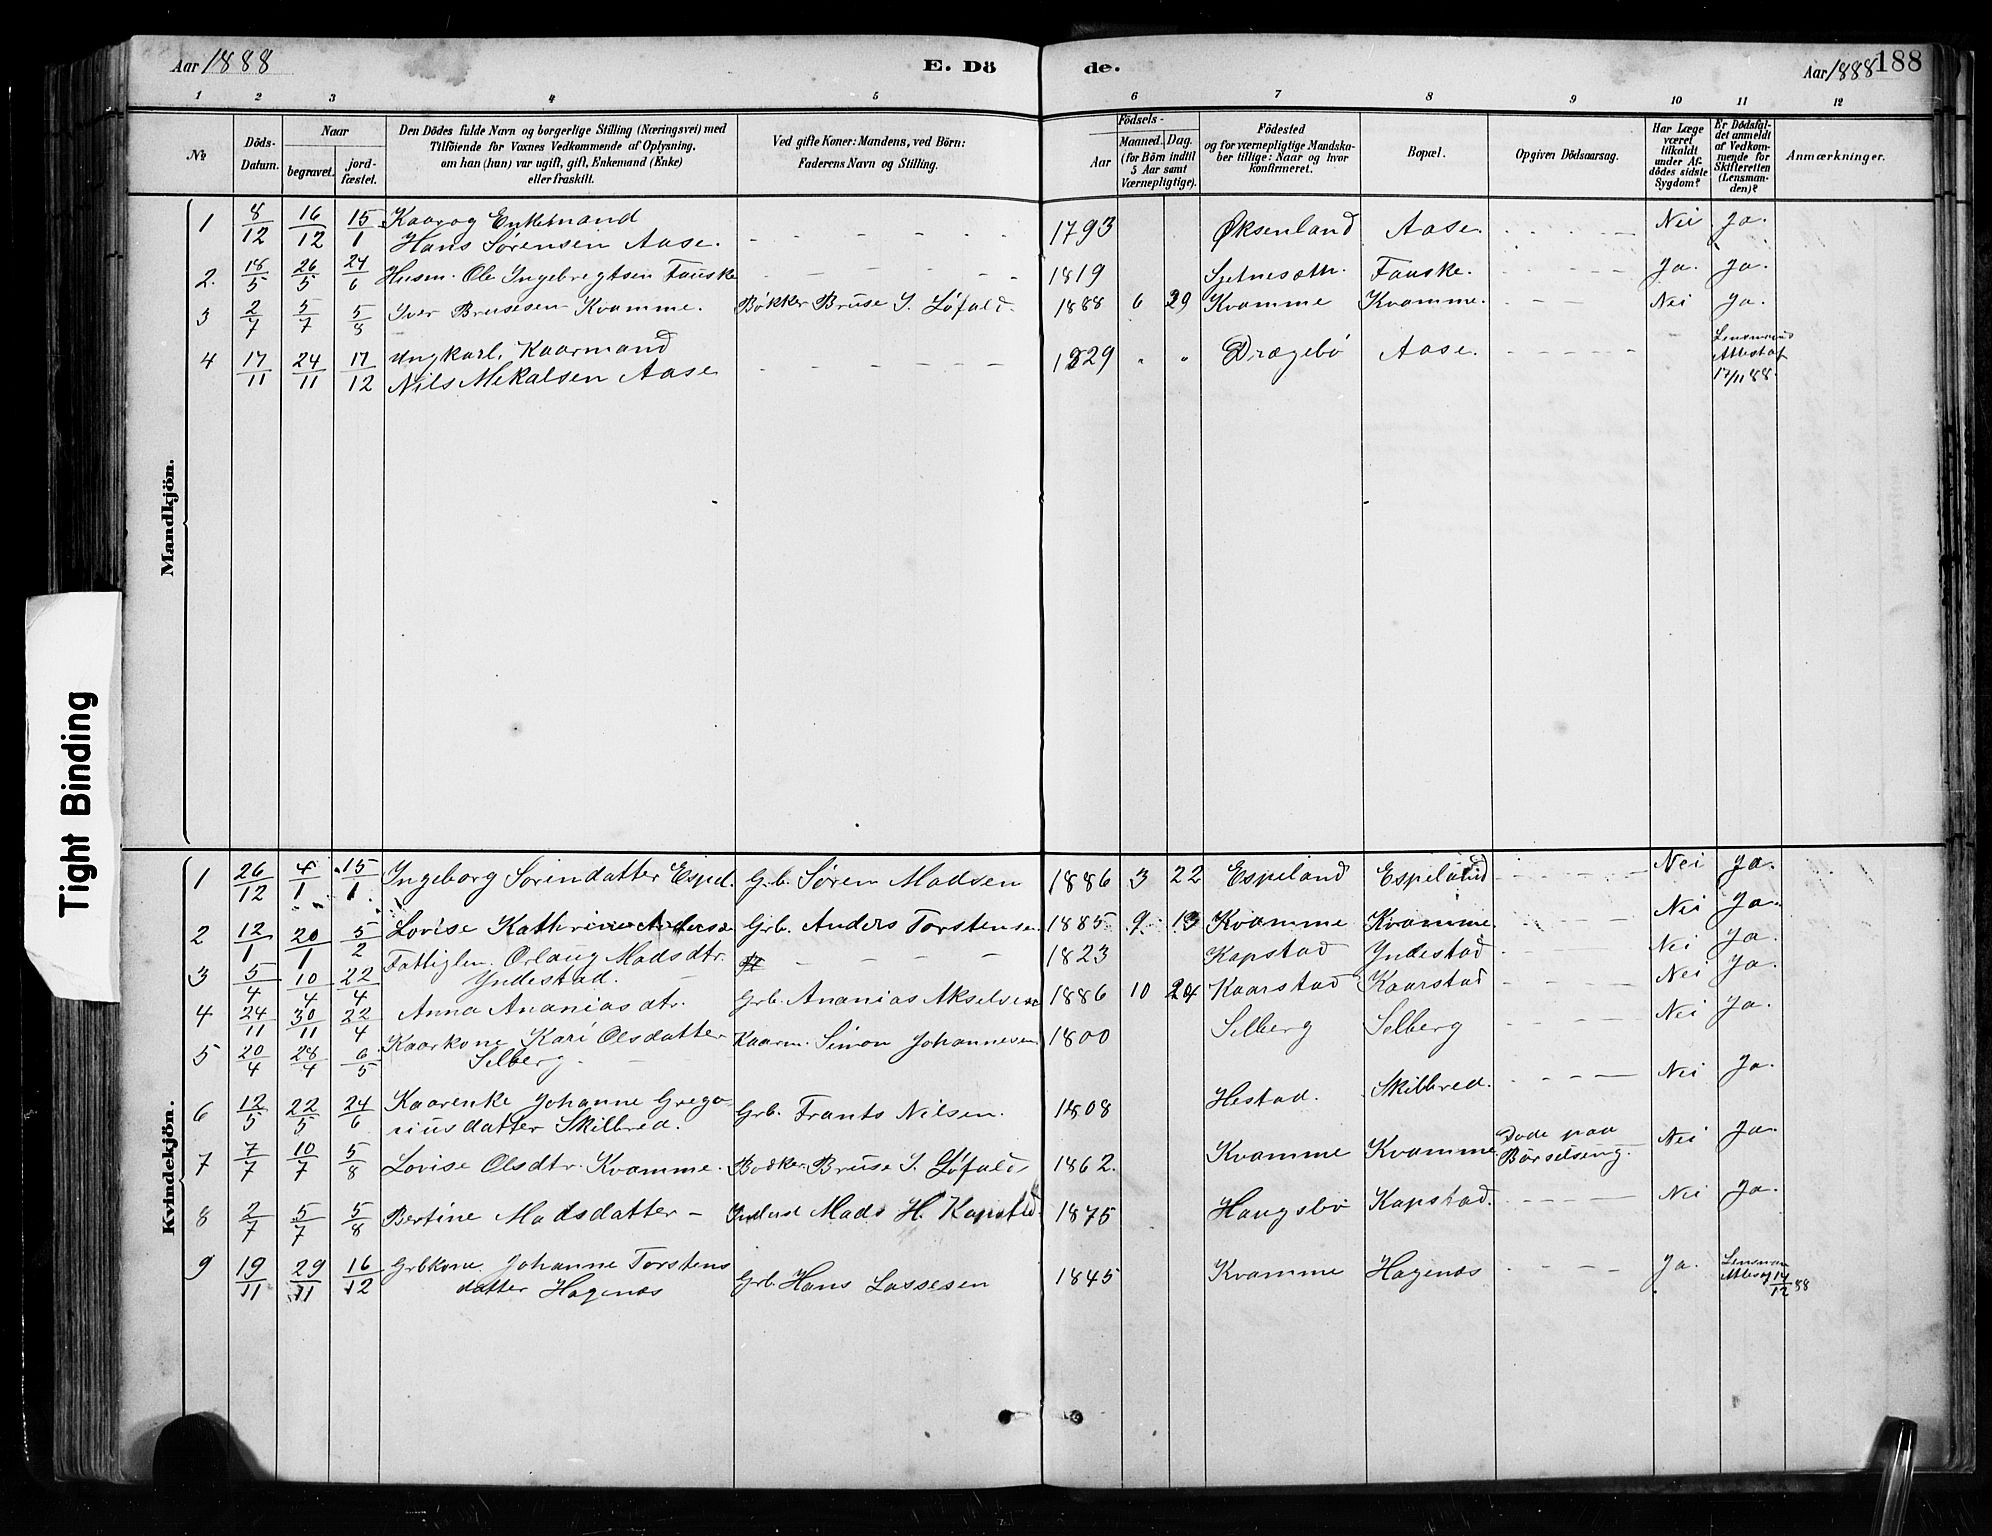 Aar 1888
E. Dö
de.
Aar 1888
188
1 2 3 4 5 6 7 8 9 10 11 12
№
Döds-Datum.
Naar
begravet.
jord-fæstet.
Den Dödes fulde Navn og borgerlige Stilling (Næringsvei) med
Tilföiende for Voxnes Vedkommende af Oplysning,
om han (hun) var ugift, gift, Enkemand (Enke)
eller fraskilt.
Ved gifte Koner: Mandens, ved Börn:
Faderens Navn og Stilling.
Födsels-
Aar
Maaned. Dag.
(for Börn indtil
5 Aar samt
Værnepligtige).
Födested
og for værnepligtige Mandska-
ber tillige: Naar og hvor
konfirmeret.
Bopæl.
Opgiven Dödsaarsag.
Har Læge
været
tilkaldt
under Af-
dödes sidste
Sygdom?
Er Dödsfal-
det anmeldt
af Vedkom-
mende for
Skifteretten
(Lensman-
den)?
Anmærkninger.
Mandkjön.
1 8/12 16/12 15/1 Kaar og Enkemand
Hans Sørensen Aase. - - - - - - 1793 Øksenland Aase. - - - - - Nei Ja.
2. 18/5 26/5 24/6 Husm. Ole Ingebregtsen Fauske - - - - - - 1819 Fauske. - - - - Ja. Ja.
3 2/7 5/7 5/8 Iver Brusesen Kvamme. Bøkker Bruse S. Løfald. 1888 6 29 Kvamme Kvamme. - - - Nei Ja.
4 17/11 24/11 17/12 Ungkarl, Kaarmand
Nils Mekalsen Aase - - - - - - 1829 " " Drægebø Aase. - - - - - - Lensmands
Attest af
17/11 88.
Kvindekjön.
1 26/12 4/1 15/1 Ingeborg Sørendatter Espel. Grb. Søren Madsen 1886 3 22 Espeland Espeland - - - - Nei Ja.
2 12/1 20/1 5/2 Lovise Kathrine Andersd Grb. Anders Torstensen 1885 9. 13 Kvamme Kvamme. - - - - Nei Ja.
3 5/4 10/4 22/4 Fattiglem. Orlaug Madsdtr.
Yndestad. - - - - 1823 Kapstad Yndestad - - - - Nei Ja.
4 24/11 30/11 22/4 Anna Ananiasdtr. Grb. Ananias Akselsen 1886 10 24 Kaarstad Kaarstad - - - - Nei Ja.
5 20/4 28/4 6/5 Kaarkone Kari Olsdatter
Selberg - Kaarm. Simon Johannesen 1800 Selberg Selberg - - - - Nei Ja.
6 12/5 22/5 24/6 Kaarenke Johanne Grego
riusdatter Skilbred. Grb. Frants Nilsen. 1808 Hestad. Skilbred. - - - - Nei Ja.
7 7/7 10/7 5/8 Lovise Olsdtr. Kvamme. Bødker Bruse S. Løfald 1862. Kvamme Kvamme Døde paa
Barselseng. Nei Ja.
8 2/7 5/7 5/8 Bertine Madsdatter - Inderst Mads H. Kapstad. 1875 Haugsbø Kapstad. - - - - Nei Ja.
9 19/11 29/11 16/12 Grbkone Johanne Torstens
datter Hagenæs Grb. Hans Lassesen 1845 Kvamme Hagenæs - - - - Ja. Lensman
Attest af 14/12 88
Tight Binding